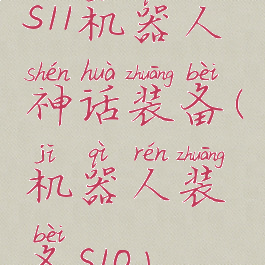 S11机器人
shén huà zhuāng bèi
神话装备(
jī qì rén zhuāng
机器人装
bèi
备S10)